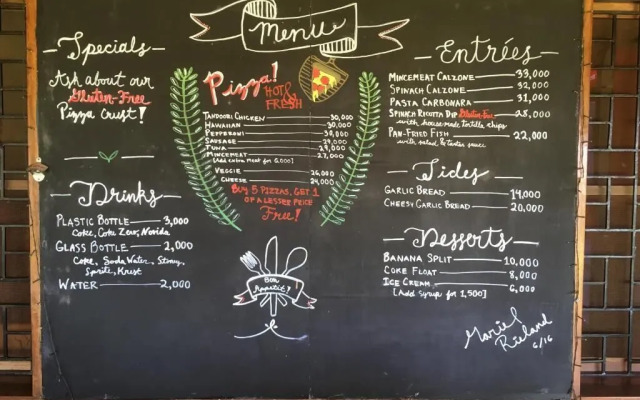 Menu
Specials
Ask about our
Gluten-Free
Pizza Crust!
Drinks
Plastic Bottle 3,000
Coke, Coke Zero, Novida
Glass Bottle 2,000
Coke, Soda Water, Stoney,
Sprite, Krest
Water 2,000
Pizza!
Hot &
Fresh
Tandoori Chicken 30,000
Hawaiian 30,000
Pepperoni 30,000
Sausage 29,000
Tuna 29,000
Mincemeat 27,000
[Add extra meat for 6,000]
Veggie 26,000
Cheese 24,000
Buy 5 Pizzas, Get 1
of a Lesser Price
Free!
Bon
Appétit!
Entrées
Mincemeat Calzone 33,000
Spinach Calzone 32,000
Pasta Carbonara 31,000
Spinach Ricotta Dip Gluten-Free 28,000
with house-made tortilla chips
Pan-Fried Fish 22,000
with salad & tartar sauce
Sides
Garlic Bread 14,000
Cheesy Garlic Bread 20,000
Desserts
Banana Split 10,000
Coke Float 8,000
Ice Cream 6,000
[Add syrup for 1,500]
6/16